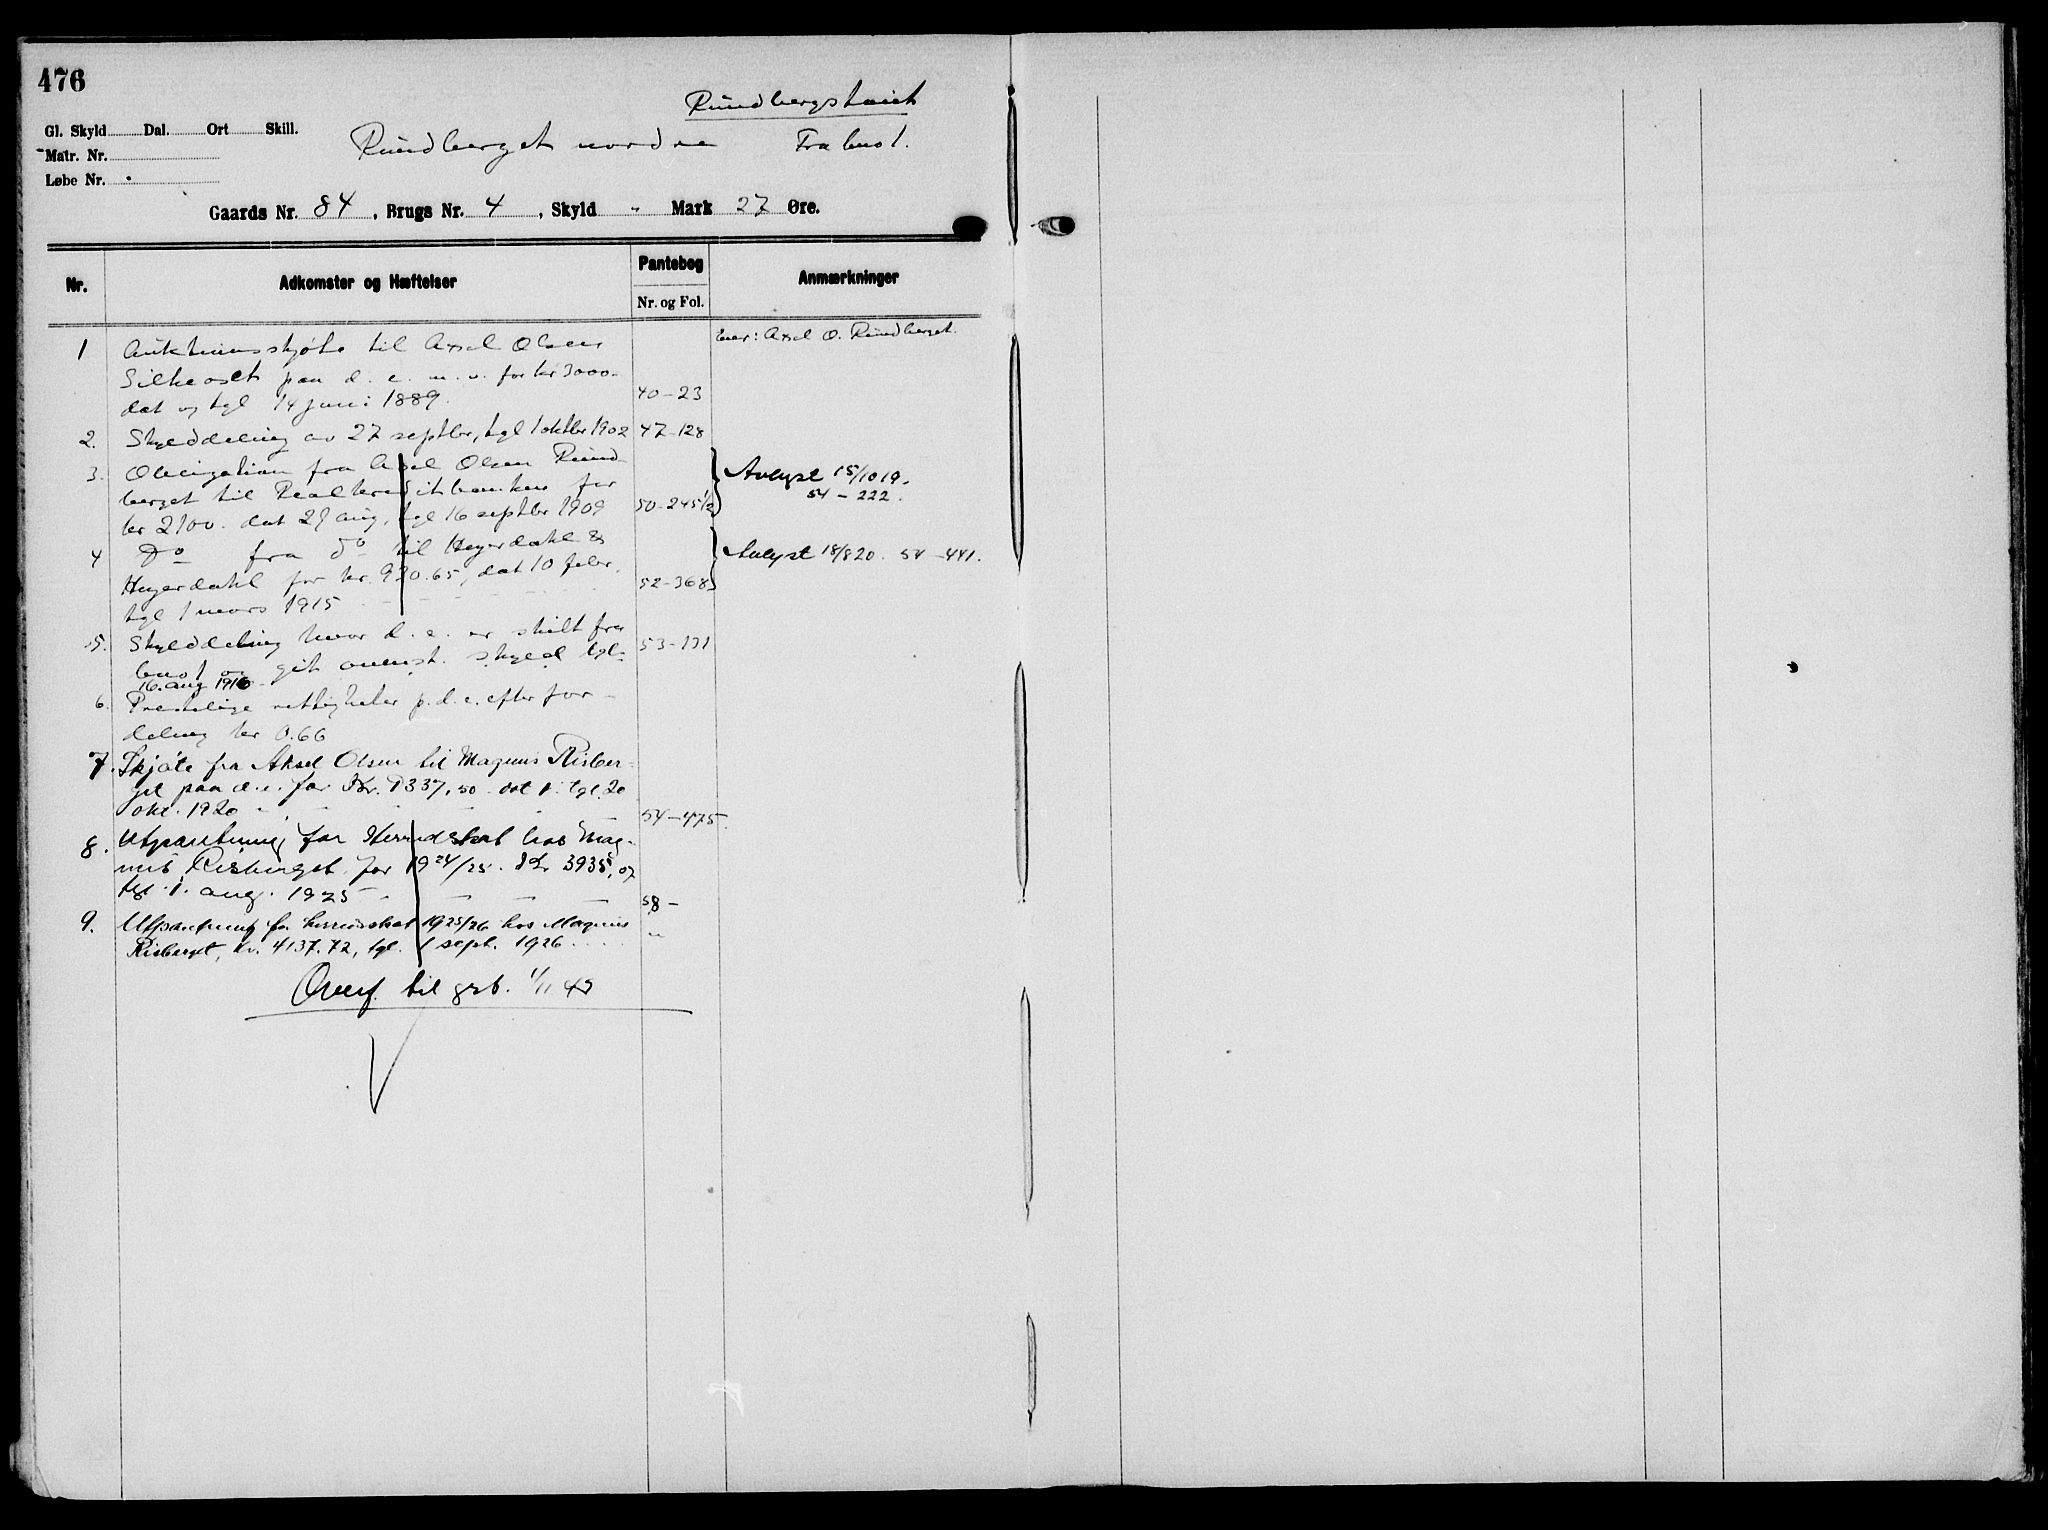 476
Gl. Skyld Dal. Ort Skill.
Matr. Nr.
Løbe Nr.
Rundberget nordre Fra bno 1.
Gaards Nr. 84, Brugs Nr. 4, Skyld - Mark 27 Øre.
Nr. Adkomster og Hæftelser Pantebog Nr. og Fol. Anmærkninger
1 Auktionsskjøte til Axel Olsen Eier: Axel O. Rundberget.
paa d. e. m. v. for kr 3000-
dat og tgl 14 juni 1889. 40-23
2. Skylddeling av 27 septbr, tgl 1 oktbr 1902 47-128
3. Obligation fra Axel Olsen Rund- Avlyst 15/10 19.
berget til Realkreditbanken for 54-222.
kr 2100. dat 29 aug, tgl 16 septbr 1909 50-245 1/2
4 Do fra do til Heyerdahl & Avlyst 18/8 20. 54-441.
Heyerdahl for kr. 920.65, dat 10 febr. 52-368
tgl 1 mars 1915
5. Skylddeling hvor d. e. er skilt fra 53-131
bno 1 og git ovenst. skyld tgl.
16. aug 1916
6. rettigheter p. d. e. efter for-
deling kr 0.66
7. Skjøte fra Aksel Olsen til Magnus Risber-
get paa d. e. for Kr. 337,50 dat & tgl. 20
okt. 1920 54-475.
8. Utpantning for Herredskat hos Mag-
nus Risberget for 1924/25. Kr 3935,07
tgl. 1. aug. 1925 58-
9. Utpantning for herredsskat 1925/26 hos Magnus "
Risberget, kr. 4137.72, tgl. 1 sept. 1926
Overf. til grb. 1/11 49